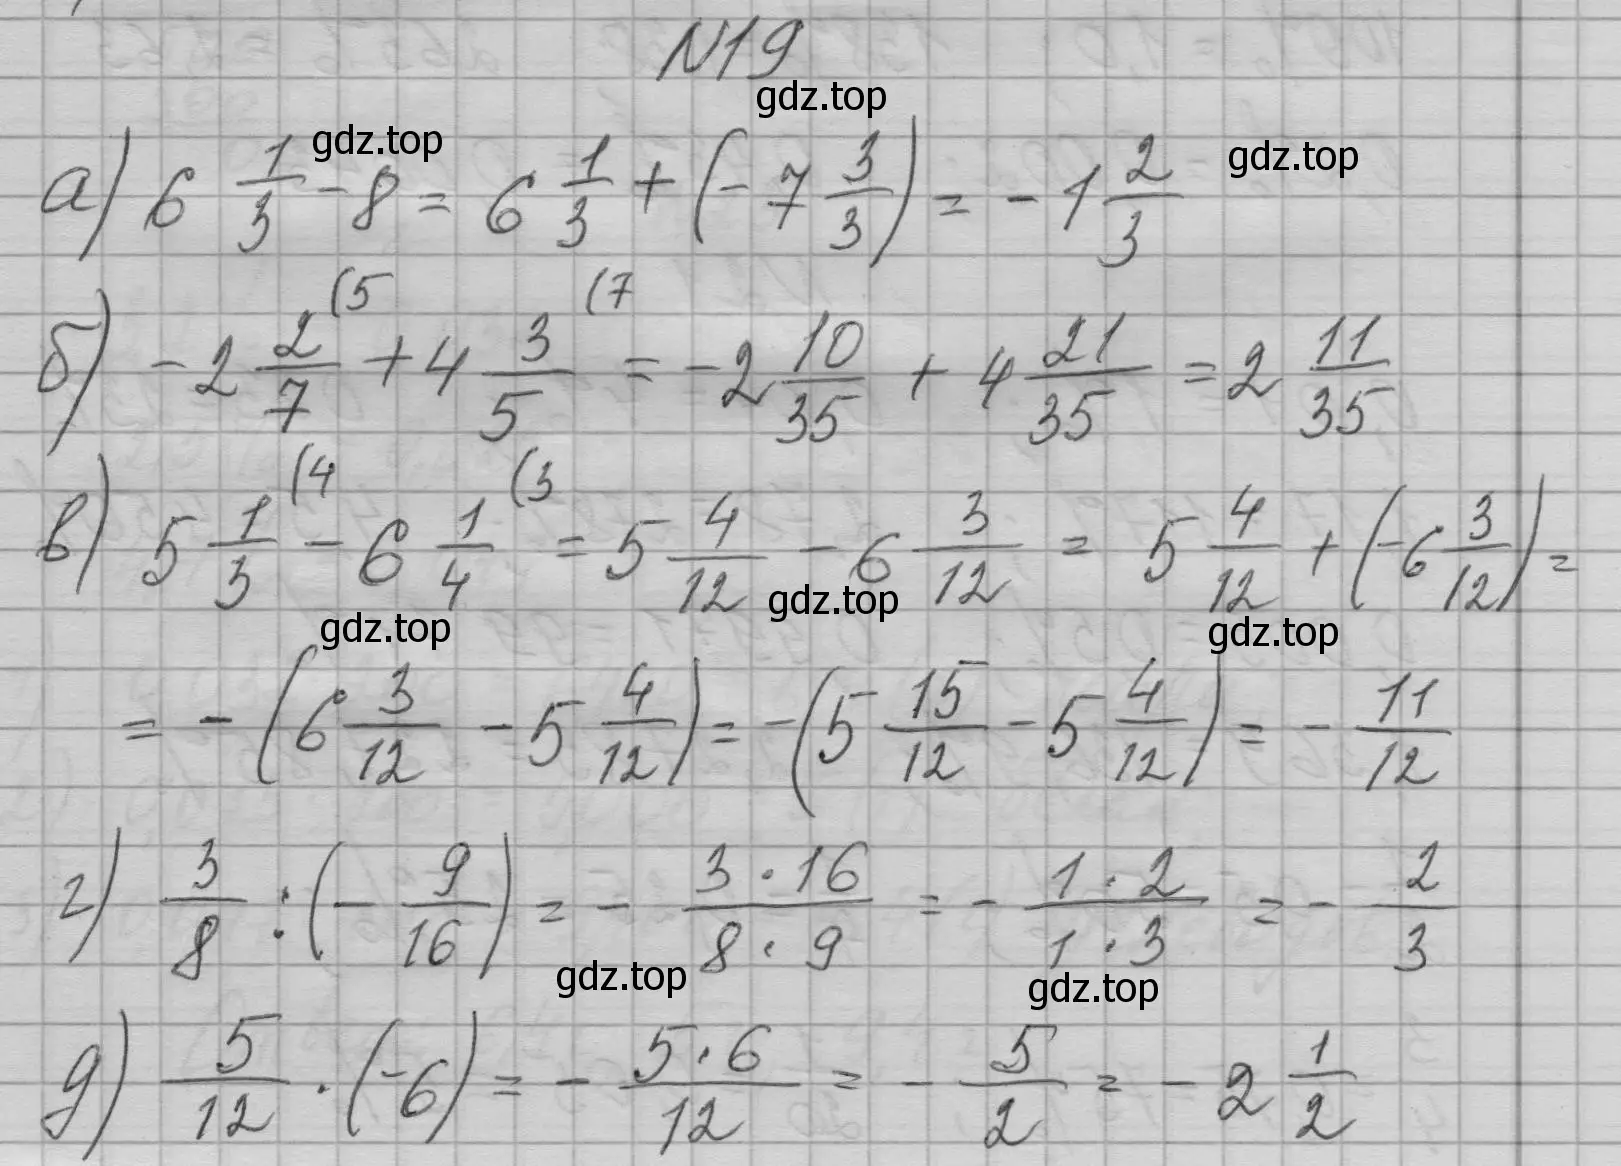 N19
gdz.top
а) 6 1/3 - 8 = 6 1/3 + (-7 3/3) = -1 2/3
gdz.top gdz.top
б) -2 2/7 (5 + 4 3/5 (7 = -2 10/35 + 4 21/35 = 2 11/35
в) 5 1/3 (4 - 6 1/4 (3 = 5 4/12 - 6 3/12 = 5 4/12 + (-6 3/12) =
gdz.top gdz.top gdz.top
= -(6 3/12 - 5 4/12) = -(5 15/12 - 5 4/12) = -11/12
г) 3/8 : (-9/16) = - 3·16/8·9 = - 1·2/1·3 = - 2/3
gdz.top gdz.top
д) 5/12 · (-6) = - 5·6/12 = - 5/2 = -2 1/2